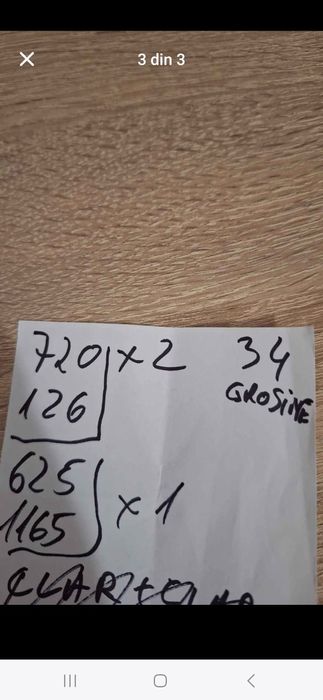 3 din 3
720 x 2 34
126 GROSIME
625
1165 x 1